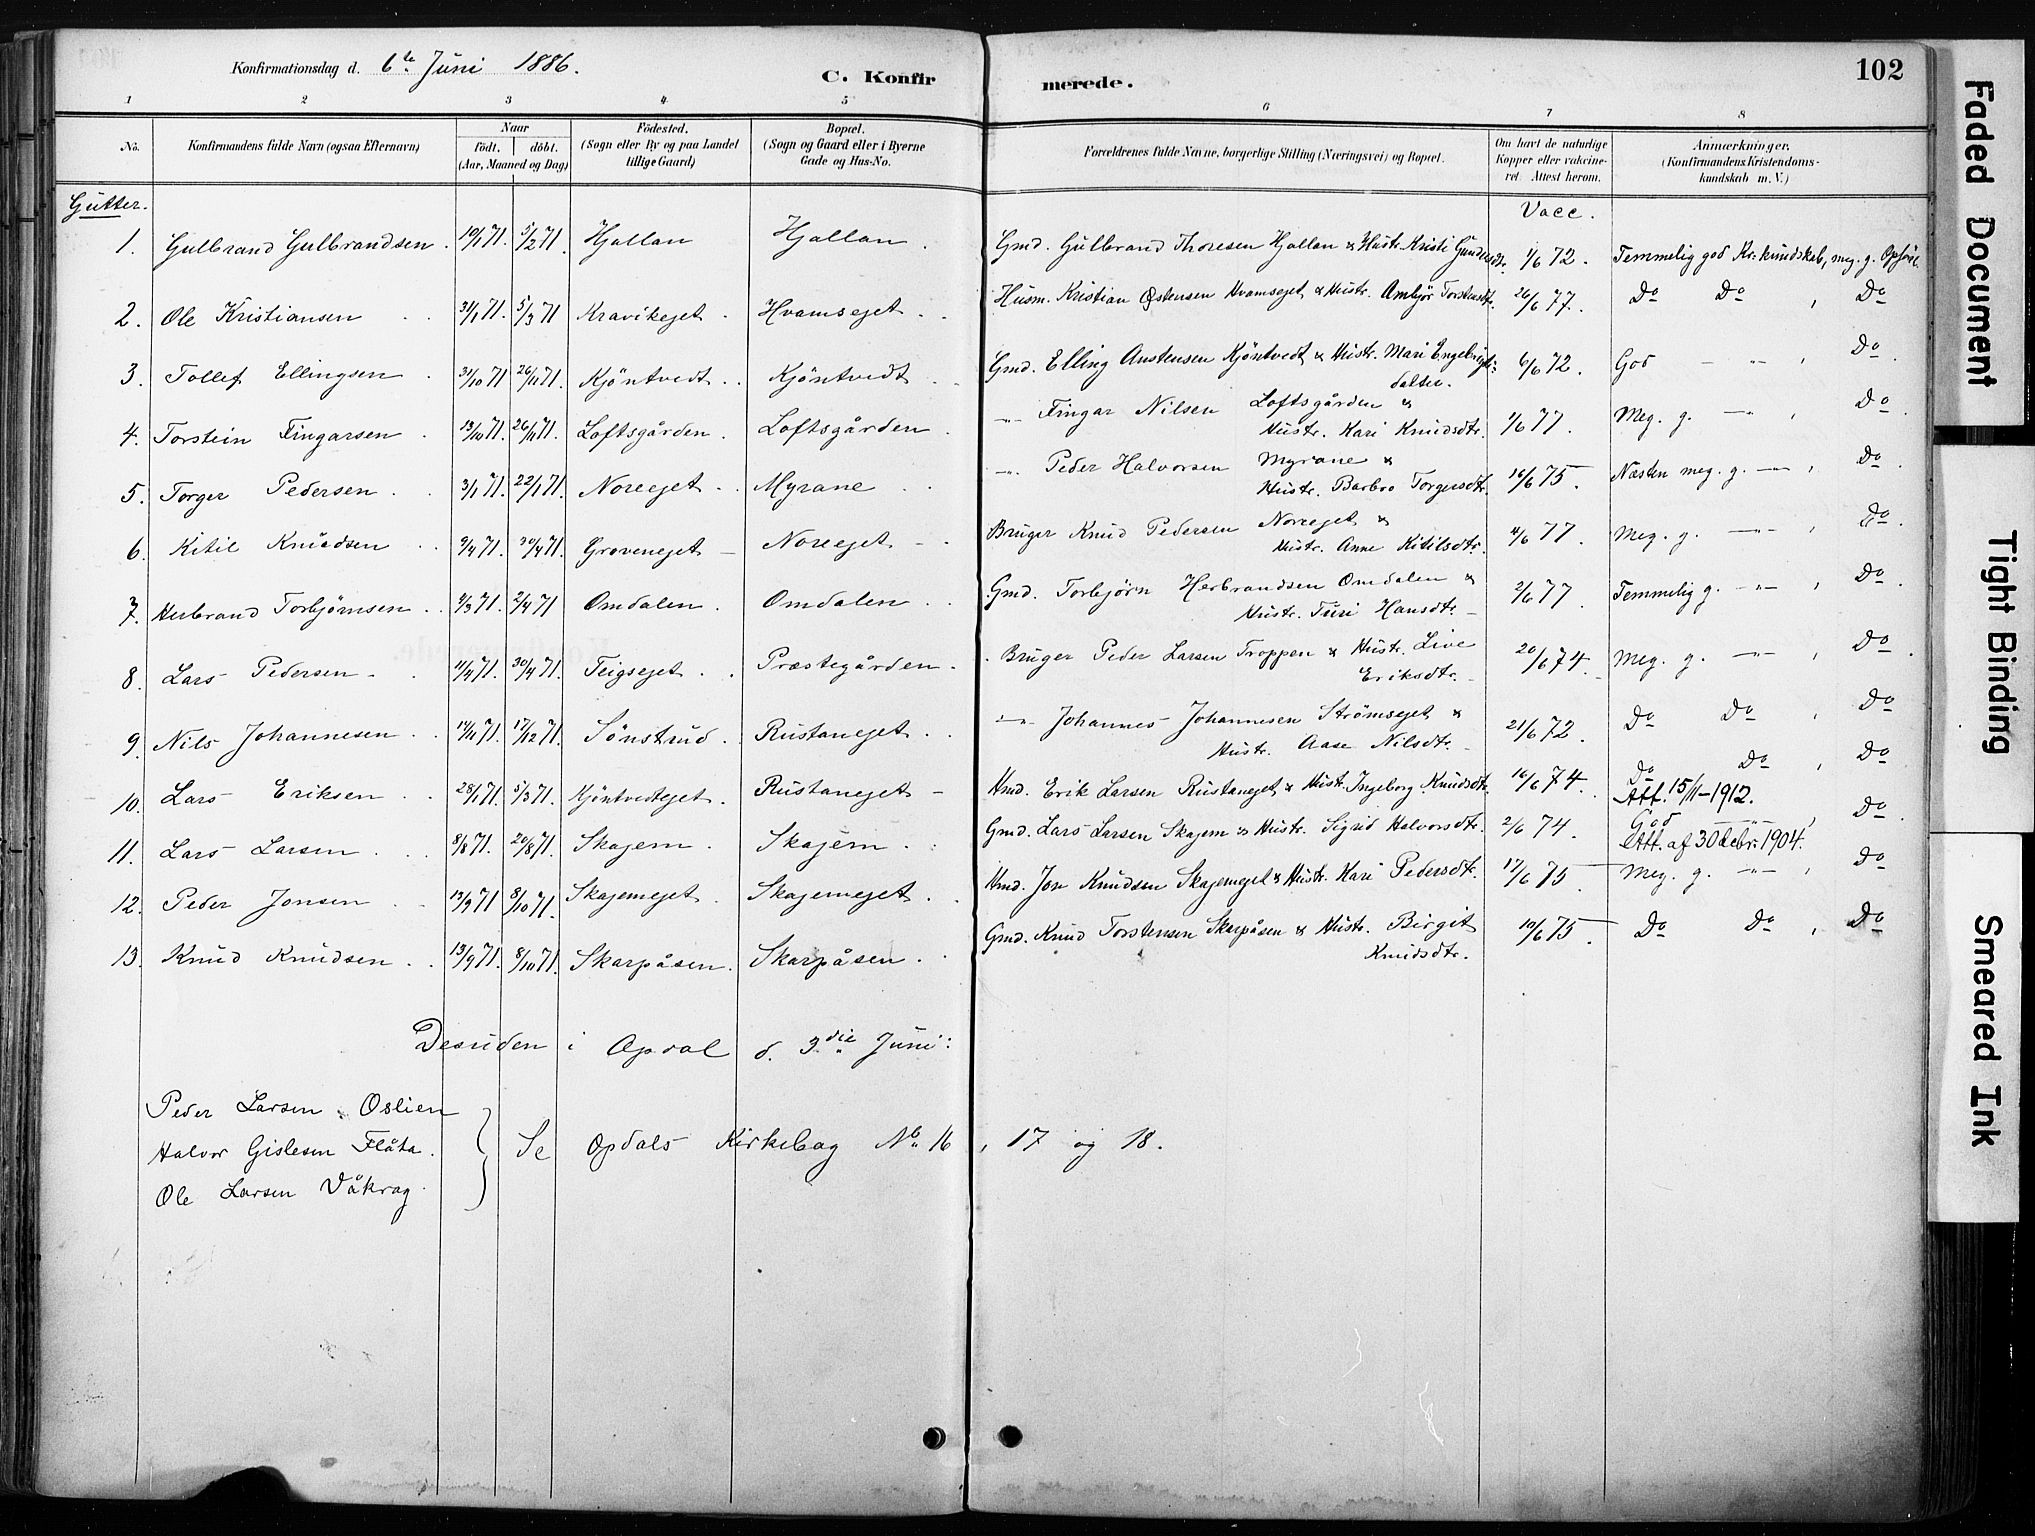 Konfirmationsdag d. 6te Juni 1886. C. Konfirmerede. 102
1 2 3 4 5 6 7 8
No. Konfirmandens fulde Navn (ogsaa Efternavn) Naar födt. döbt. (Aar, Maaned og Dag) Födested. (Sogn eller By og paa Landet tillige Gaard) Bopæl. (Sogn og Gaard eller i Byerne Gade og Hus-No. Forældrenes fulde Navne, borgerlige Stilling (Næringsvei) og Bopæl. Om havt de naturlige Kopper eller vakcineret. Attest herom. Anmærkninger. (Konfirmandens Kristendomskundskab m. V.)
Gutter. Vacc.
1. Gulbrand Gulbrandsen. 10/1 71. 5/2 71. Hjallan Hjallan. Gmd. Gulbrand Thoresen Hjallan & Hustr. Kristi Gundersdtr. 1/6 72. Temmelig god Kr.kundskab, meg. g. Opförl.
2. Ole Kristiansen 31/1 71. 5/3 71 Kravikejet. Hvamsejet. Husm. Kristian Østensen Hvamsejet & Hustr. Ambjör Torstensdtr. 26/6 77. Do Do, Do
3. Tollef Ellingsen 31/10 71 26/11 71. Kjöntvedt. Kjöntvedt. Gmd. Elling Anstensen Kjöntvedt & Hustr. Mari Engebrigtsdatter. 6/6 72. God —"—, Do
4. Torstein Fingarsen. 13/10 71. 26/11 71. Loftsgården. Loftsgården. —"— Fingar Nilsen Loftsgården & Hustr. Kari Knudsdtr. 1/6 77. Meg. g. —"—, Do
5. Torger Pedersen 3/1 71. 22/1 71. Noreejet. Myrane —"— Peder Halvorsen Myrane & Hustr. Barbro Torgersdtr. 16/6 75. Næsten meg. g. —"—, Do
6. Kitil Knudsen 9/4 71. 30/4 71. Grovenejet – Noreejet – Bruger Knud Pedersen Noreejet & Hustr. Anne Kitilsdtr. 4/6 77. Meg. g. —"—, Do
7. Herbrand Torbjörnsen. 2/3 71. 2/4 71 Omdalen. Omdalen. Gmd. Torbjörn Herbrandsen Omdalen & Hustr. Turi Hansdtr. – 2/6 77. Temmelig g. —"—, Do
8. Lars Pedersen 11/4 71. 30/4 71. Teigsejet. Præstegården. Bruger Peder Larsen Troppen & Hustr. Live Eriksdtr. 20/6 74. Meg. g. —"—, Do
9. Nils Johannesen. 14/11 71. 17/12 71. Sönstrud. Rustanejet. —"— Johannes Johannesen Strömsejet & Hustr. Aase Nilsdtr. 21/6 72. Do Do, Do
10. Lars Eriksen 28/1 71. 5/3 71. Kjöntvedtejet. Rustanejet – Hmd. Erik Larsen Rustanejet & Hustr. Ingeborg Knudsdtr. 16/6 74. Do Do, Do
Att. 15/11–1912.
11. Lars Larsen. 8/8 71. 20/8 71. Skajem. Skajem. Gmd. Lars Larsen Skajem & Hustr. Sigrid Halvorsdtr. 2/6 74. God —"—, Do
Att. af 30 decbr. 1904.
12. Peder Jonsen 13/9 71 8/10 71. Skajemejet. Skajemejet. Hmd. Jon Knudsen Skajemejet & Hustr. Kari Pedersdtr. 17/6 75. Meg. g. —"—, Do
13. Knud Knudsen. 13/9 71. 8/10 71. Skarpåsen. Skarpåsen. Gmd. Knud Torstensen Skarpåsen & Hustr. Birgit Knudsdtr. 10/6 75. Do Do, Do
Desuden i Opdal d. 3die Juni:
Peder Larsen Oslien
Halvor Gislesen Flåta. Se Opdals Kirkebog No 16, 17 og 18.
Ole Larsen Våkrag.
Faded Document
Tight Binding
Smeared Ink